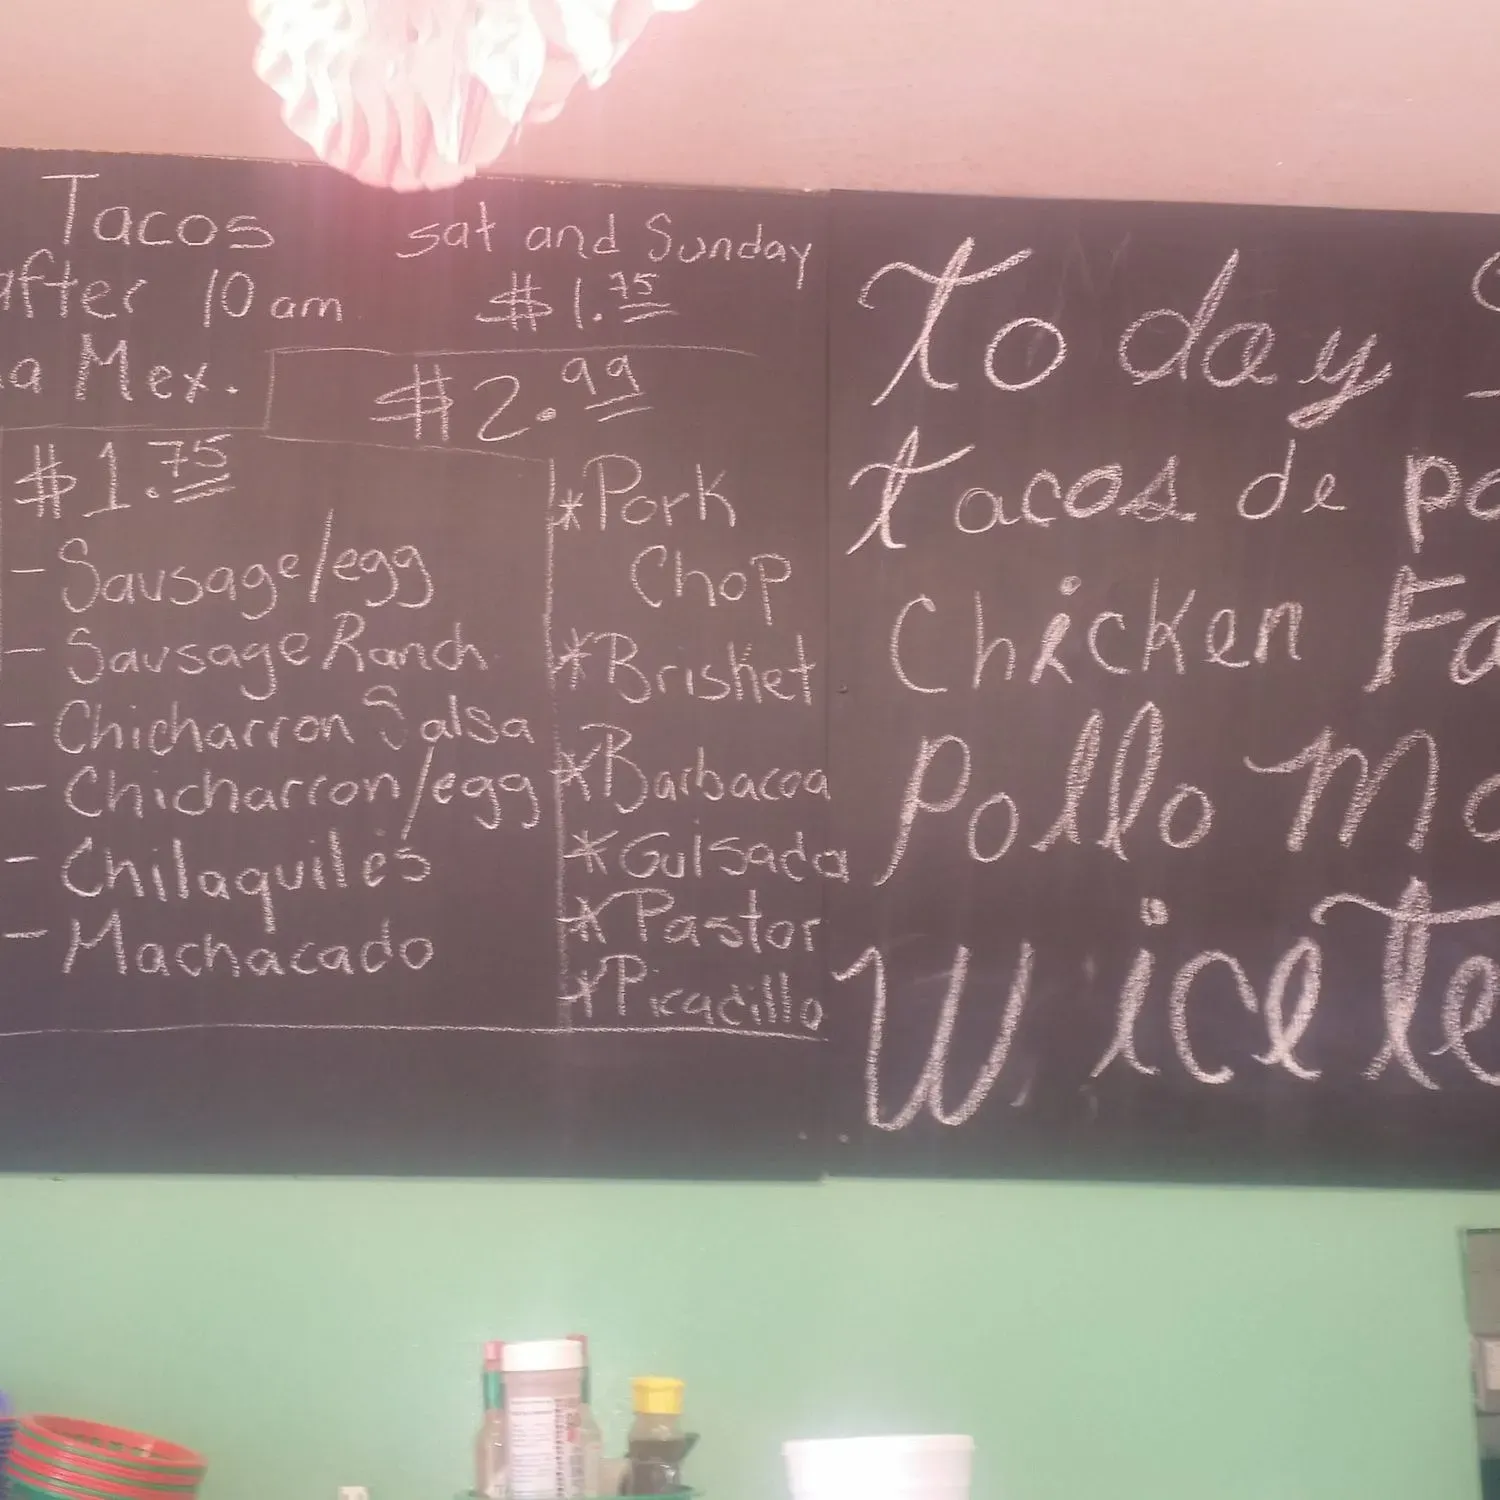 Tacos
after 10 am
a Mex.
sat and Sunday
$1.75
$2.99
$1.75
- Sausage/egg
- Sausage Ranch
- Chicharron Salsa
- Chicharron/egg
- Chilaquiles
- Machacado
*Pork
Chop
*Brisket
*Barbacoa
*Guisada
*Pastor
*Picadillo
Today
tacos de po
Chicken Fa
Pollo Mo
Wicete